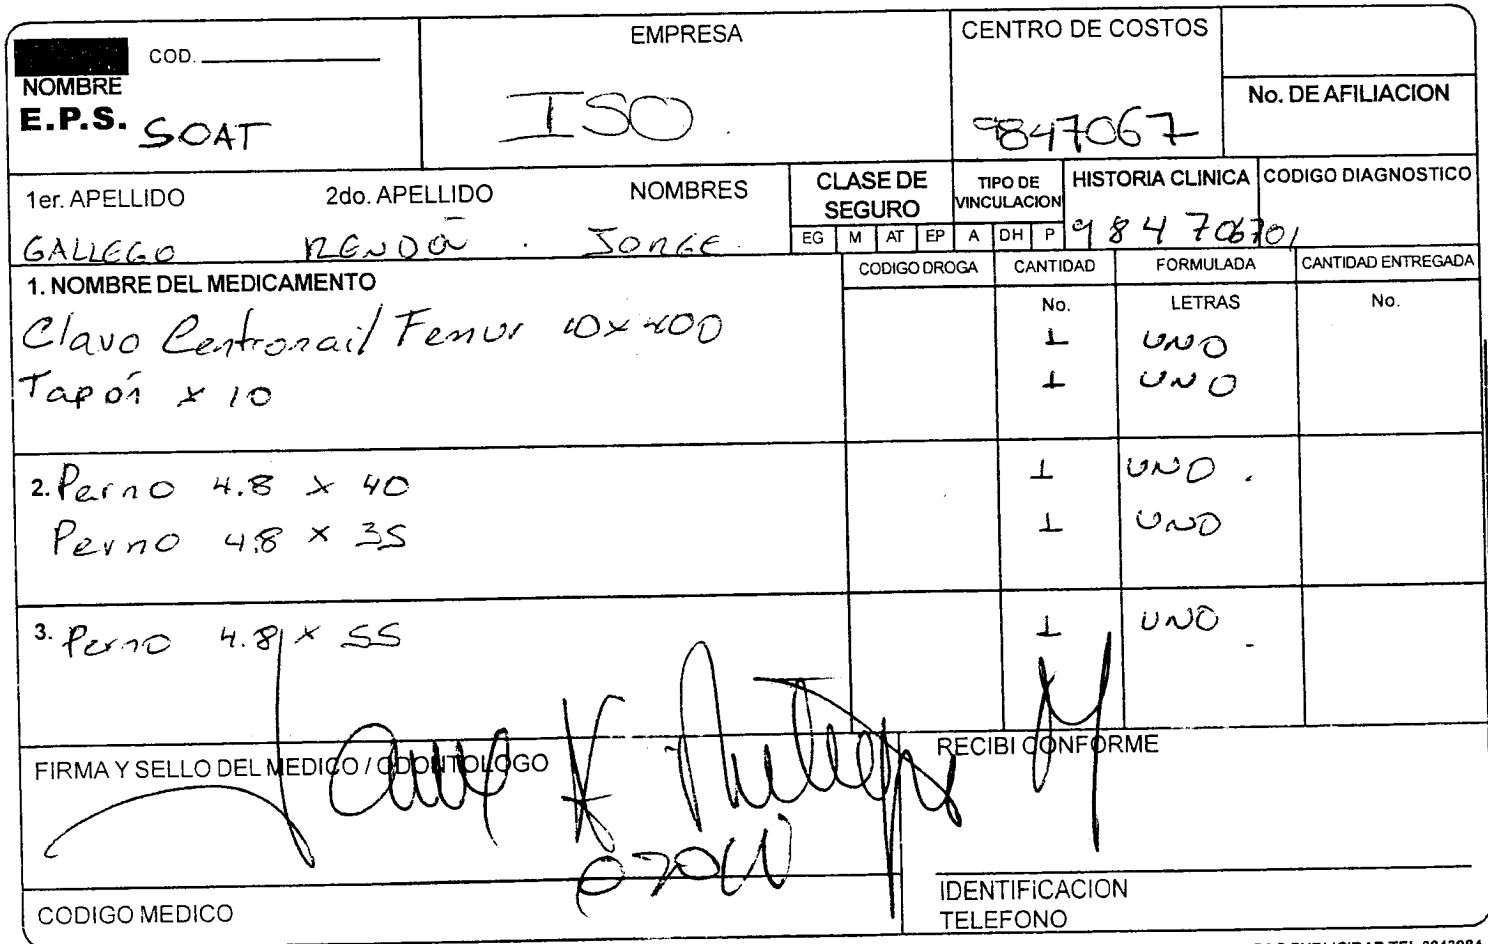 COD.
NOMBRE
E.P.S. SOAT
EMPRESA
ISO
CENTRO DE COSTOS
9847067
No. DE AFILIACION
1er. APELLIDO 2do. APELLIDO NOMBRES
GALLEGO RENDO JORGE
CLASE DE SEGURO
EG M AT EP
TIPO DE VINCULACION
A DH P
HISTORIA CLINICA
984706701
CODIGO DIAGNOSTICO
1. NOMBRE DEL MEDICAMENTO CODIGO DROGA CANTIDAD FORMULADA CANTIDAD ENTREGADA
No. LETRAS No.
Clavo Centronail Femur 10x400 1 UNO
Tapón x 10 1 UNO
2. Perno 4.8 x 40 1 UNO.
Perno 4.8 x 35 1 UNO
3. Perno 4.8 x 55 1 UNO
FIRMA Y SELLO DEL MEDICO / ODONTOLOGO
RECIBI CONFORME
CODIGO MEDICO
IDENTIFICACION
TELEFONO